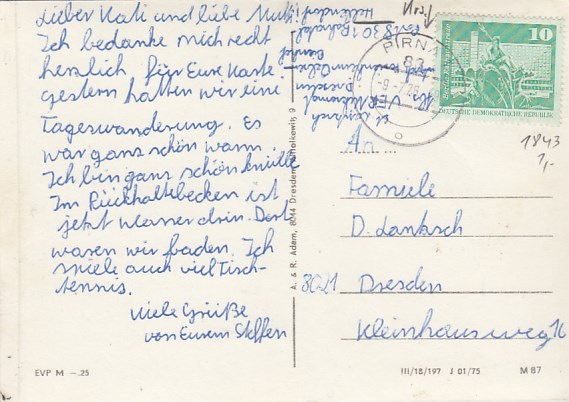 Lieber Kati und liebe Mutti!
Ich bedanke mich recht
herzlich für Eure Karte.
gestern hatten wir eine
Tageswanderung. Es
war ganz schön warm.
Ich bin ganz schön knülle
Im Rückhaltebecken ist
jetzt wasser drin. Dort
waren wir baden. Ich
spiele auch viel Tisch-
tennis.
viele Grüße
von Eurem Steffen
EVP M –.25
A. & R. Adam, 8014 Dresden, Tholkewitz 9
8301
Dresden
VEB
PIRNA
83
10
DEUTSCHE DEMOKRATISCHE REPUBLIK
1843
1,-
An
Famiele
D.
8021 Dresden
Kleinhausweg
III/18/197 J 01/75
M 87